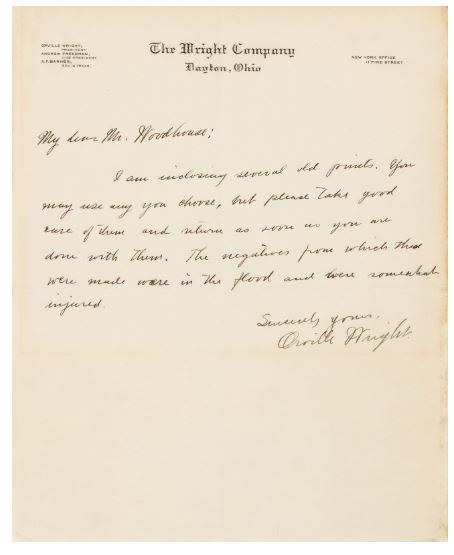 ORVILLE WRIGHT,
PRESIDENT
ANDREW FREEDMAN,
VICE PRESIDENT
A.F. BARNES,
SEC'Y & TREAS.
The Wright Company
Dayton, Ohio
NEW YORK OFFICE
11 PINE STREET
My dear Mr. Woodhouse;
I am inclosing several old prints. You
may use any you choose, but please take good
care of them and return as soon as you are
done with them. The negatives from which these
were made were in the flood and were somewhat
injured.
Sincerely yours,
Orville Wright.